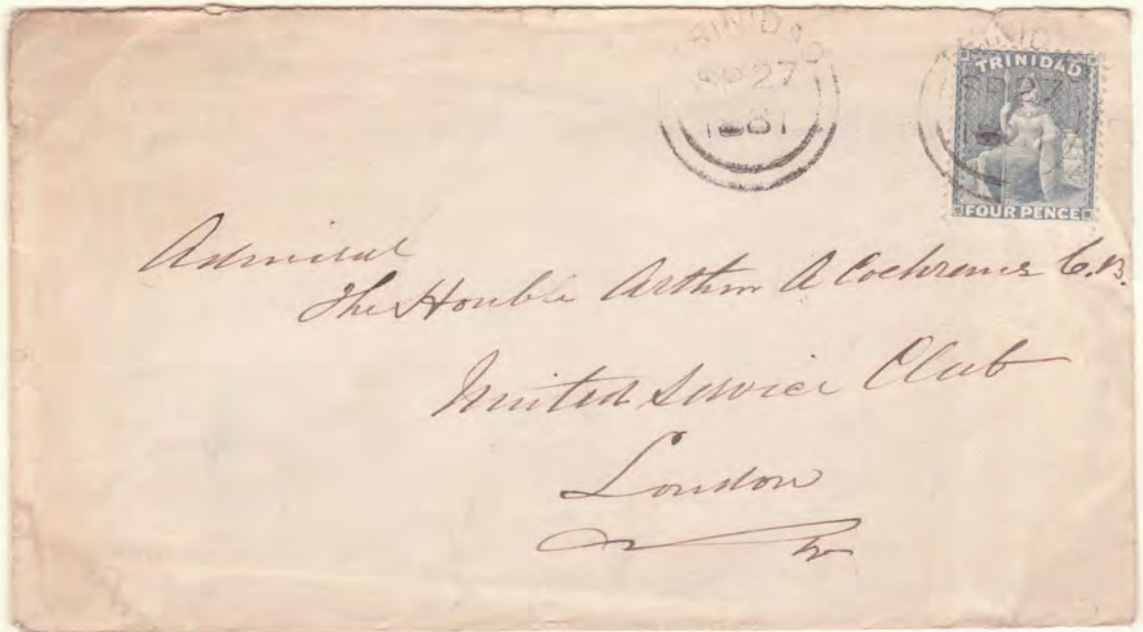 TRINIDAD
SP 27
1881
TRINIDAD
SP 27
TRINIDAD
FOUR PENCE
Admiral
The Honble Arthur A Cochrane C.B.
United Service Club
London